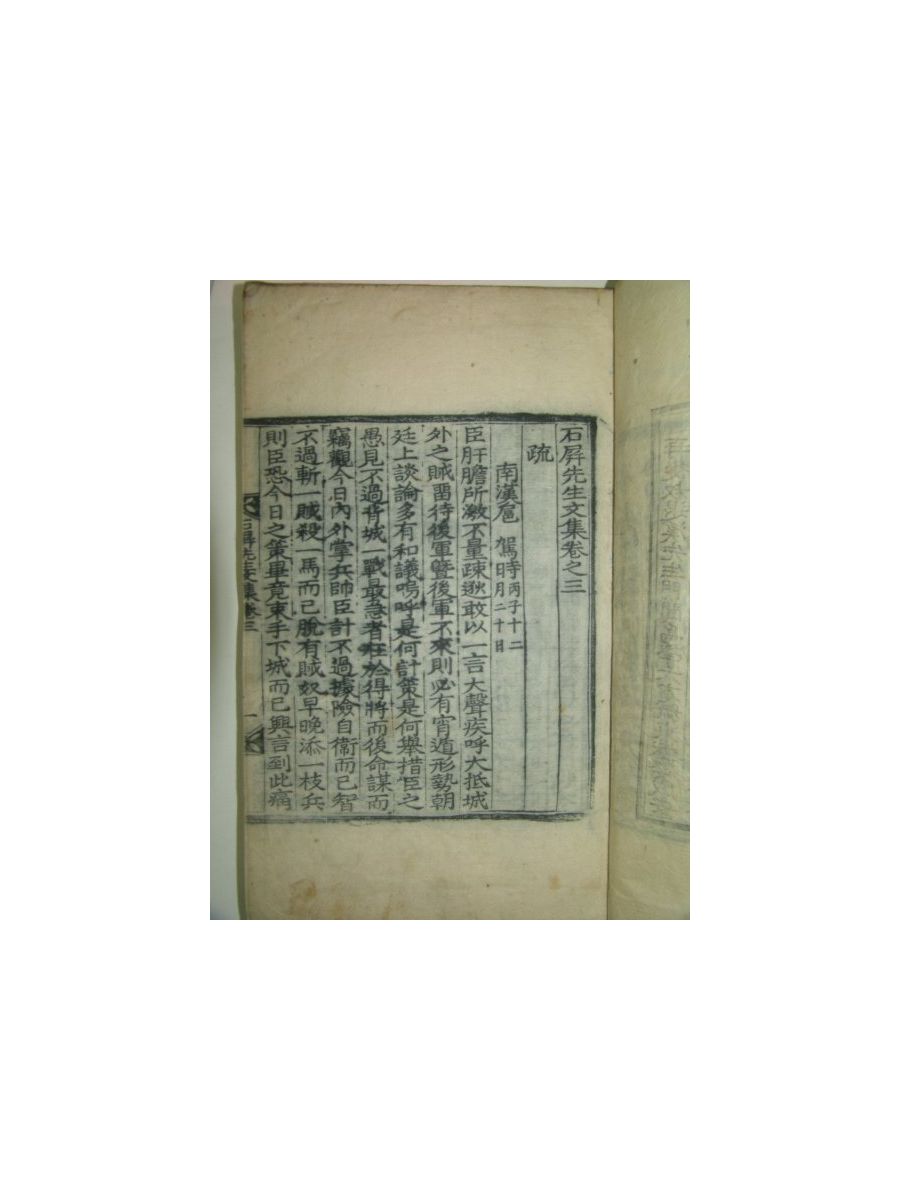 石屛先生文集卷之三
疏
南漢扈 駕時丙子十二月二十日
臣肝膽所激不量疎逖敢以一言大聲疾呼大抵城
外之賊留待後軍曁後軍不來則必有宵遁形勢朝
廷上談論多有和議嗚呼是何計策是何擧措臣之
愚見不過背城一戰最急者在於得將而後命謀而
竊觀今日內外掌兵帥臣計不過據險自衛而已智
不過斬一賊殺一馬而已脫有賊奴早晩添一枝兵
則臣恐今日之策畢竟束手下城而已興言到此痛
石屛先生文集卷三 一